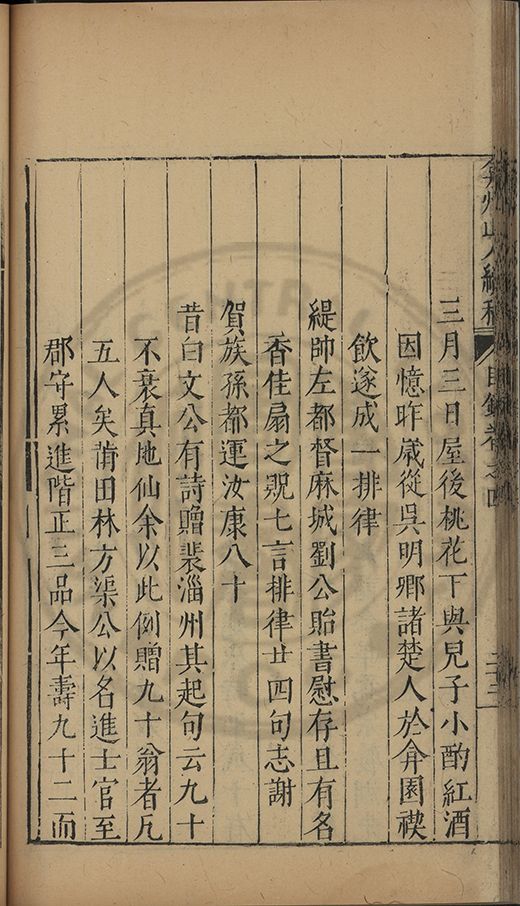 三月三日屋後桃花下與兒子小酌紅酒
因憶昨歲從吳明卿諸楚人於弇園禊
飲遂成一排律
緹帥左都督麻城劉公貽書慰存且有名
香佳扇之貺七言排律廿四句志謝
賀族孫都運汝康八十
昔白文公有詩贈裴淄州其起句云九十
不衰真地仙余以此例贈九十翁者凡
五人矣莆田林方渠公以名進士官至
郡守累進階正三品今年壽九十二而